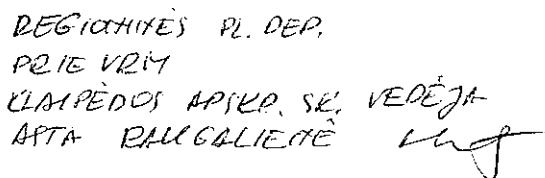 REGIONINĖS PL. DEP.
PRIE VRM
KLAIPĖDOS APSKR. SK. VEDĖJA
ASTA RAMGALIENĖ